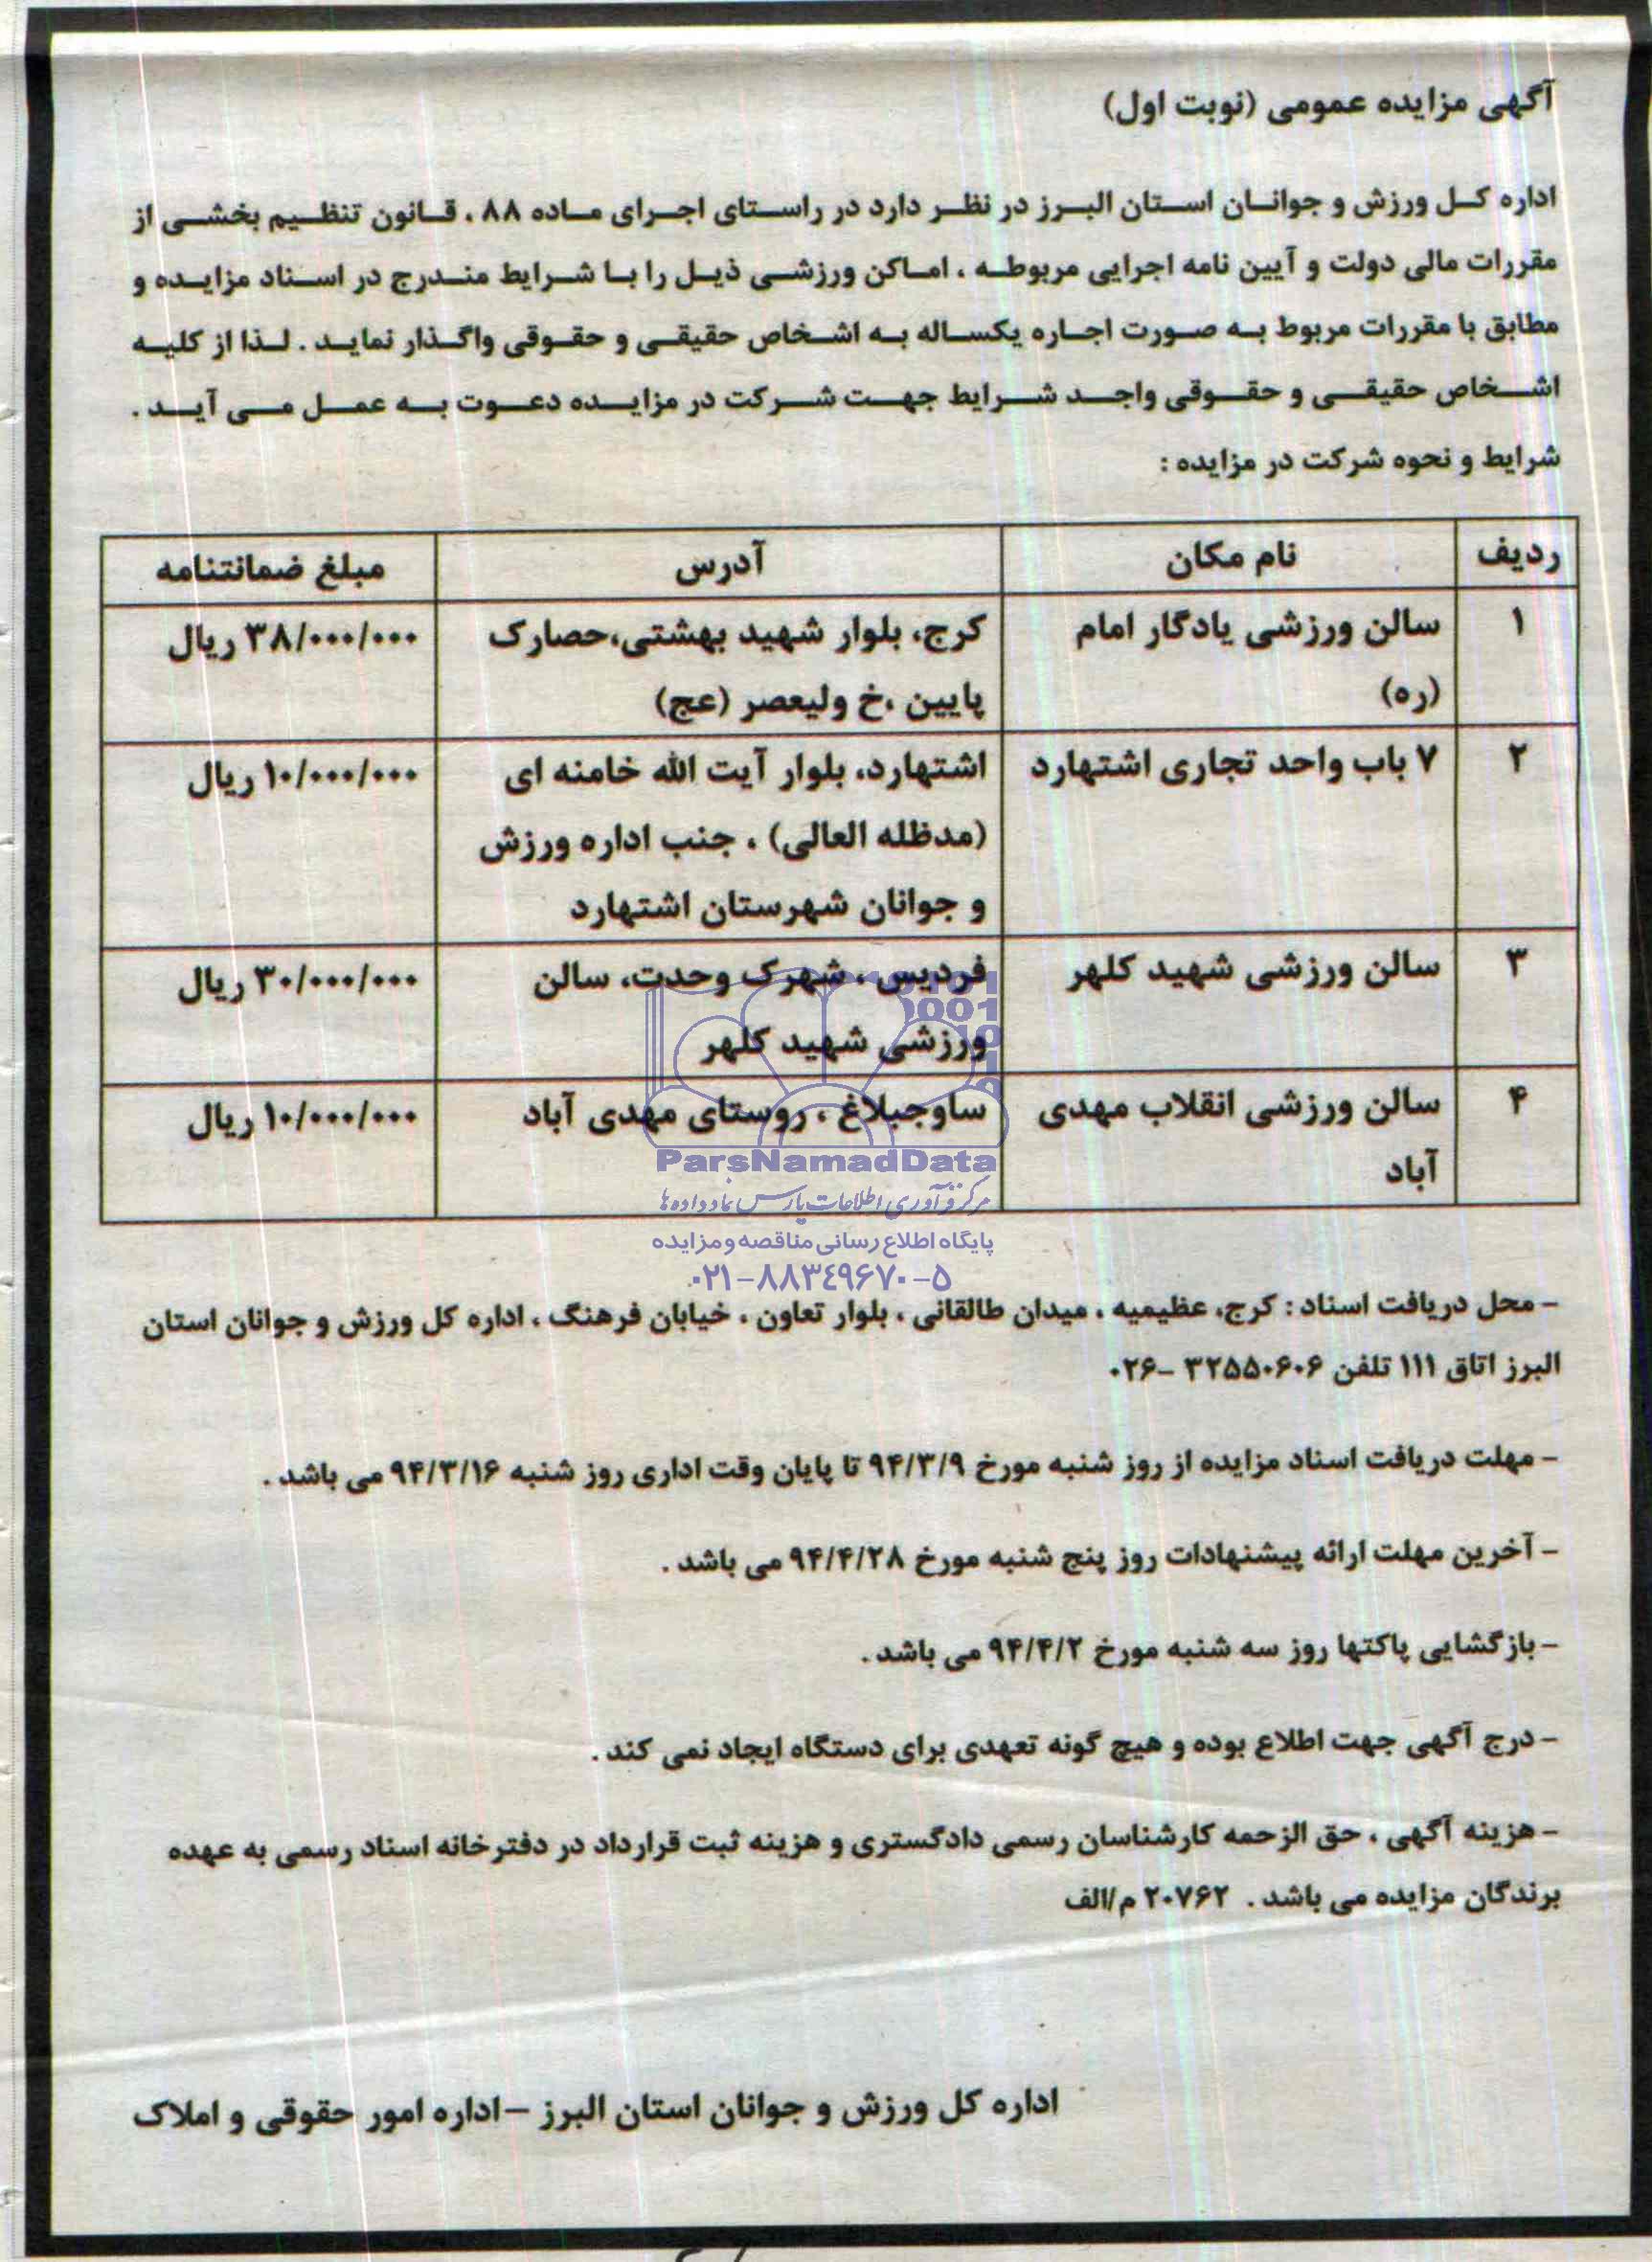 آگهی مزایده عمومی (نوبت اول)
اداره کل ورزش و جوانان استان البرز در نظر دارد در راستای اجرای ماده ۸۸ ، قانون تنظیم بخشی از
مقررات مالی دولت و آیین نامه اجرایی مربوطه ، اماکن ورزشی ذیل را با شرایط مندرج در اسناد مزایده و
مطابق با مقررات مربوط به صورت اجاره یکساله به اشخاص حقیقی و حقوقی واگذار نماید . لذا از کلیه
اشخاص حقیقی و حقوقی واجد شرایط جهت شرکت در مزایده دعوت به عمل می آید .
شرایط و نحوه شرکت در مزایده :
ردیف نام مکان آدرس مبلغ ضمانتنامه
۱ سالن ورزشی یادگار امام کرج، بلوار شهید بهشتی،حصارک ۳۸/۰۰۰/۰۰۰ ریال
(ره) پایین ،خ ولیعصر (عج)
۲ ۷ باب واحد تجاری اشتهارد اشتهارد، بلوار آیت الله خامنه ای ۱۰/۰۰۰/۰۰۰ ریال
(مدظله العالی) ، جنب اداره ورزش
و جوانان شهرستان اشتهارد
۳ سالن ورزشی شهید کلهر فردیس ، شهرک وحدت، سالن ۳۰/۰۰۰/۰۰۰ ریال
ورزشی شهید کلهر
۴ سالن ورزشی انقلاب مهدی ساوجبلاغ ، روستای مهدی آباد ۱۰/۰۰۰/۰۰۰ ریال
آباد
ParsNamadData
مرکز فرآوری اطلاعات پارس نماد داده ها
پایگاه اطلاع رسانی مناقصه و مزایده
۰۲۱-۸۸۳۴۹۶۷۰-۵
- محل دریافت اسناد : کرج، عظیمیه ، میدان طالقانی ، بلوار تعاون ، خیابان فرهنگ ، اداره کل ورزش و جوانان استان
البرز اتاق ۱۱۱ تلفن ۳۲۵۵۰۶۰۶ -۰۲۶
- مهلت دریافت اسناد مزایده از روز شنبه مورخ ۹۴/۳/۹ تا پایان وقت اداری روز شنبه ۹۴/۳/۱۶ می باشد .
- آخرین مهلت ارائه پیشنهادات روز پنج شنبه مورخ ۹۴/۴/۲۸ می باشد .
- بازگشایی پاکتها روز سه شنبه مورخ ۹۴/۴/۲ می باشد .
- درج آگهی جهت اطلاع بوده و هیچ گونه تعهدی برای دستگاه ایجاد نمی کند .
- هزینه آگهی ، حق الزحمه کارشناسان رسمی دادگستری و هزینه ثبت قرارداد در دفترخانه اسناد رسمی به عهده
برندگان مزایده می باشد . ۲۰۷۶۲ م/الف
اداره کل ورزش و جوانان استان البرز –اداره امور حقوقی و املاک